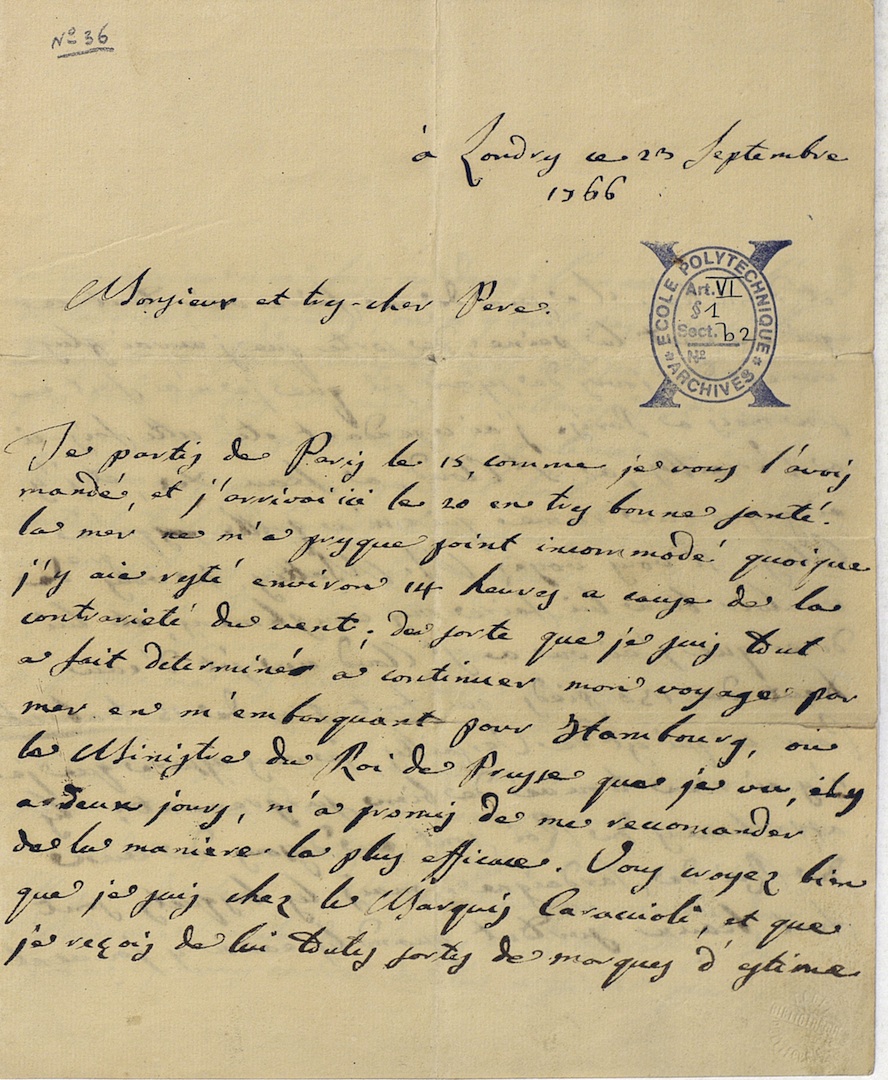 N° 36
à Londres ce 23 Septembre
1766
ECOLE POLYTECHNIQUE
Art. VI
§ 1
Sect. b2
N°
* ARCHIVES *
Monsieur et tres-cher Pere.
Je partis de Paris le 15, comme je vous l'avois
mandé, et j'arrivai ici le 20 en tres bonne santé.
la mer ne m'a presque point incommodé quoique
j'y aie resté environ 14 heures a cause de la
contrarieté du vent; de sorte que je suis tout
a fait determiné à continuer mon voyage par
mer en m'embarquant pour Hambourg, où
le Ministre du Roi de Prusse que je vis, il y
a deux jours, m'a promis de me reccomander
de la maniere la plus efficace. Vous croyez bien
que je suis chez le Marquis Caraccioli, et que
je reçois de lui toutes sortes de marques d'estime